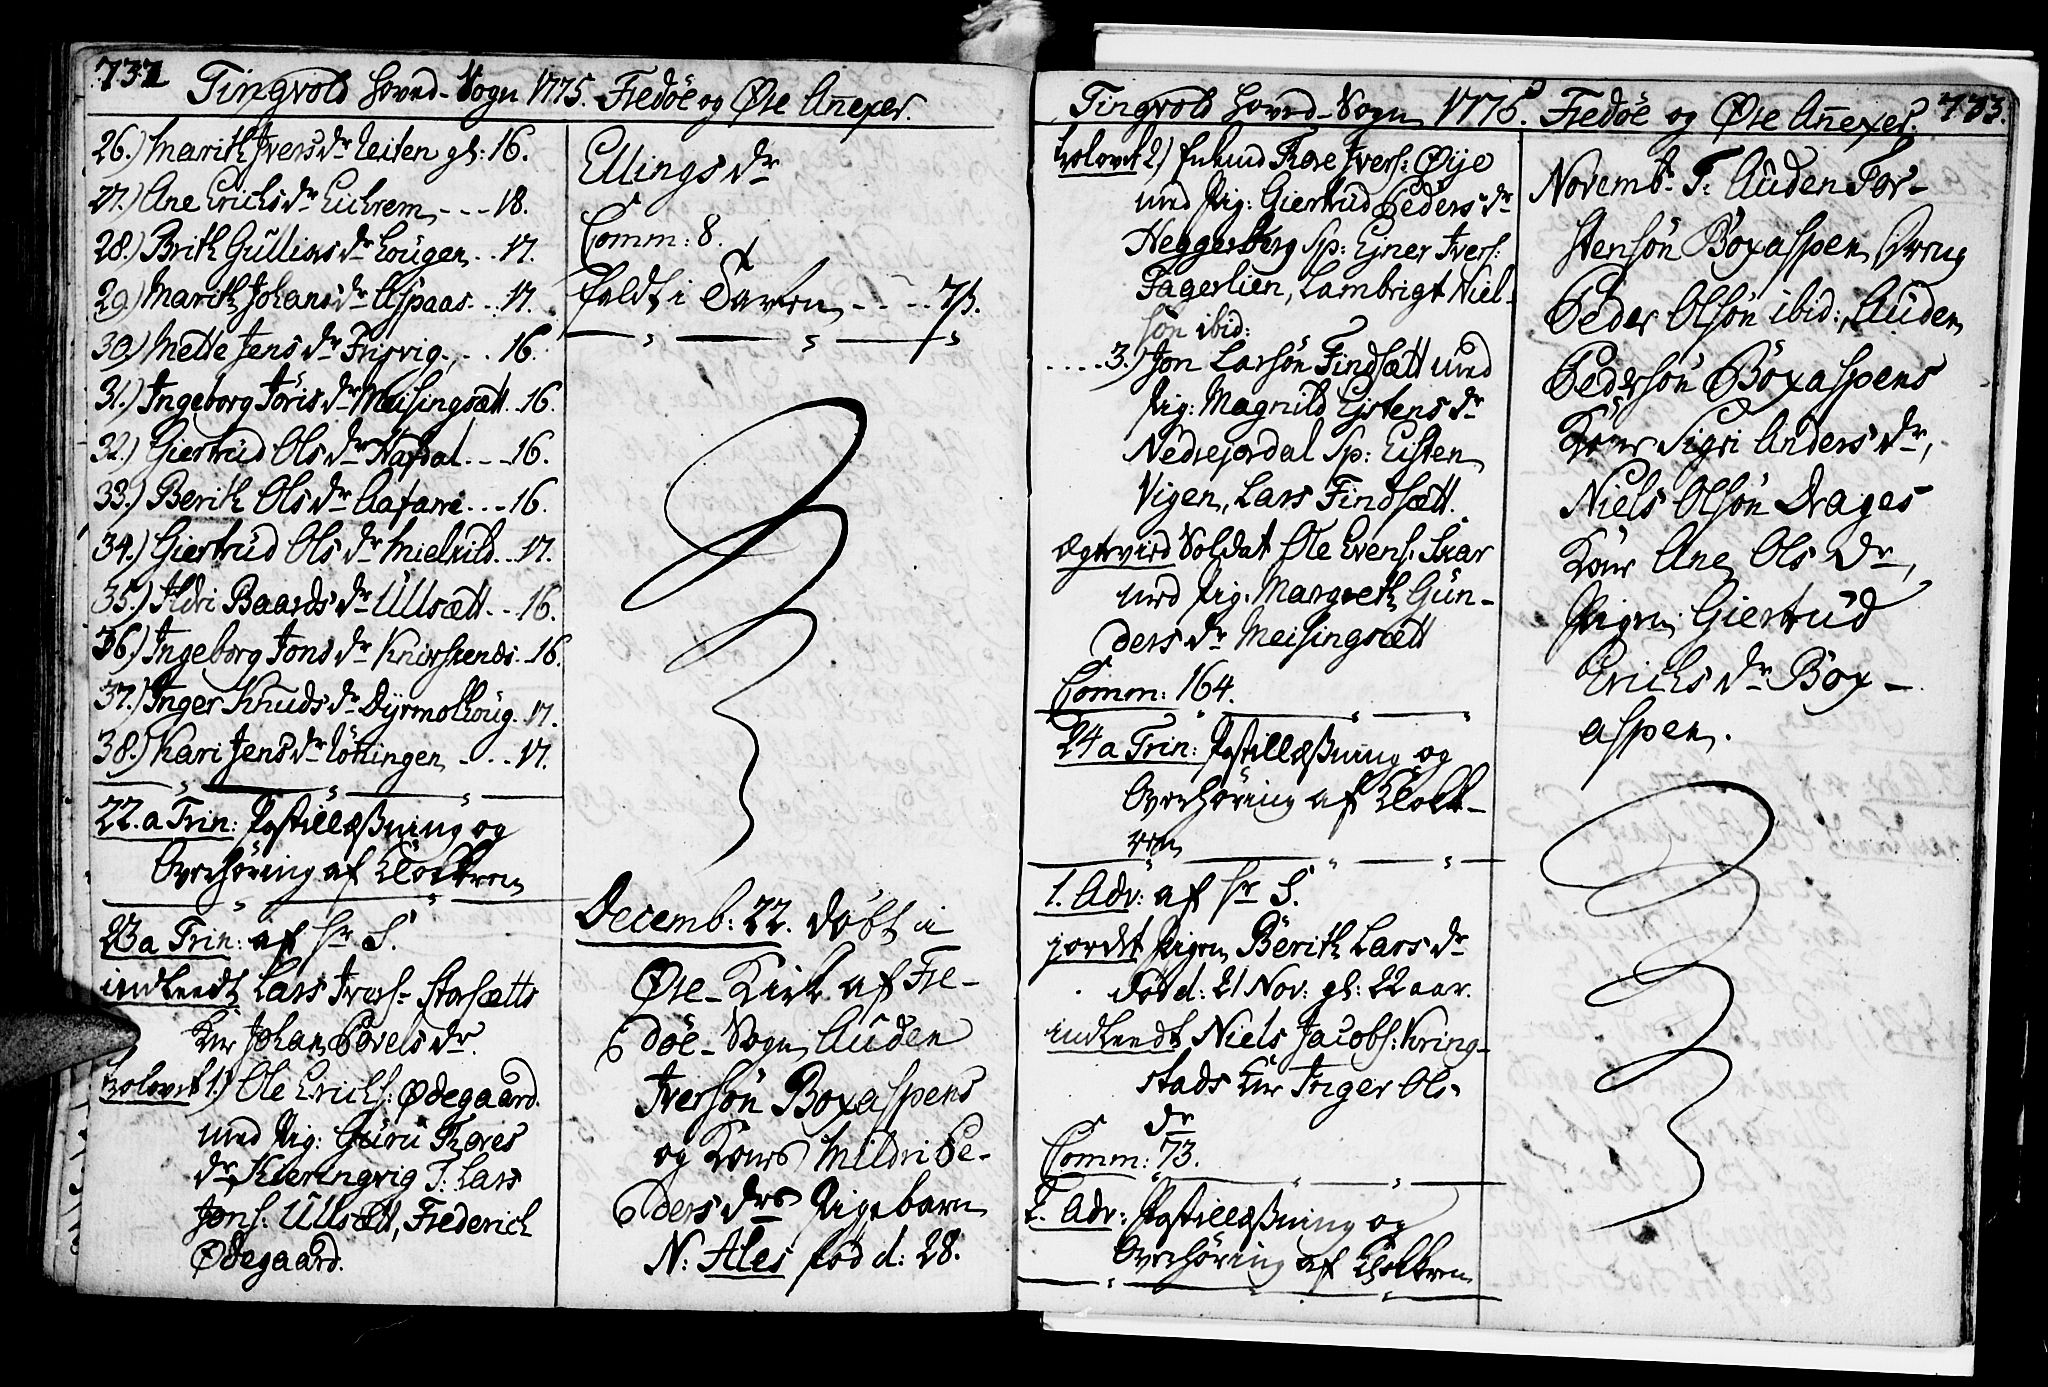 732
Tingvold Hoved-Sogn 1775. Fredöe og Øre Añexer.
26.) Marith Ivers dr Leiten gl: 16.
27.) Ane Erichs dr Eichrem - - - 18.
28.) Brith Gulliks dr Hougen - - 17.
29) Marith Johans dr Aspaas - - 17.
30.) Mette Jens dr Frisvig - - 16.
31.) Ingeborg Jöris dr Meisingsætt - 16.
32.) Giertrud Ols dr Hafdal - - - 16.
33.) Berith Ols dr Aafarre - - - 16.
34.) Giertrud Ols dr Mielkild - - 17.
35.) Ildri Baards dr Ullsætt - - 16.
36.) Ingeborg Jons dr - 16.
37.) Inger Knuds dr Dyrmolhoug - 17.
38.) Kari Jens dr Löchingen - - - 17.
22. a Trin: Postillæßning og
Overhöring af Klockren
23 a Trin: af Hr S.
indleedt Lars Ivers: Storsætts
Kir Johan Povels dr.
trolovet 1.) Ole Erichs: Ødegaard
med Pig: Guru Thores
dr Kieringvig S: Lars
Jons: Ullsætt, Frederich
Ødegaard.
Ellings dr
Comm: 8.
faldt i Tavlen - - - - 7 s.
Decemb: 22. döbt i
Øre-Kirk af Fre-
döe-Sogn Auden
Iversön Boxaspens
og Kones Mildri Pe-
ders drs Pigebarn
N: Ales föd d: 28.
Tingvold Hoved-Sogn 1775. Fredöe og Øre Añexer. 733.
trolovet 2) Tore Ivers: Øije
med Pig: Giertrud Peders dr
Heggerberg Sp: Ejner Ivers:
Fagerlien, Lambrigt Niel-
sön ibid:
- - - - 3.) Jon Larsön Findsætt med
Pig: Magnild Ejstens dr
Nedrejordal Sp: Eisten
Vigen, Lars Findsætt.
ægteviid Soldat Ole Evens: Skar
med Pig: Margreth Gun-
ders dr Meisingsætt
Comm: 164.
24 a Trin: Postillæßning og
Overhöring af Klock-
ren
1. Adv: af Hr S.
jordet Pigen Berith Lars dr
död d: 21 Nov: gl: 22 aar.
indleedt Niels Jacobs: Kring-
stads Kir Inger Ols-
dr
Comm: 73.
2. Adv: Postillæßning og
Overhöring af Klockren
Novemb. T: Auden Tor-
stensön Boxaspen, Dreng
Peder Olsön ibid:, Auden
Pedersön Böxaspens
Kone Sigri Anders dr,
Niels Olsön Drages
Kone Ane Ols dr,
Pigen Giertrud
Erichs dr Box-
aspen.